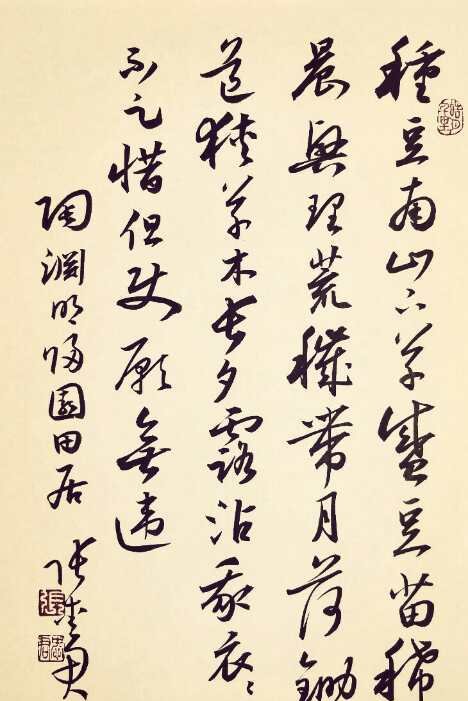 種豆南山下草盛豆苗稀
晨興理荒穢帶月荷鋤
道狹草木長夕露沾我衣〻
不足惜但使願無違
陶淵明歸園田居 張